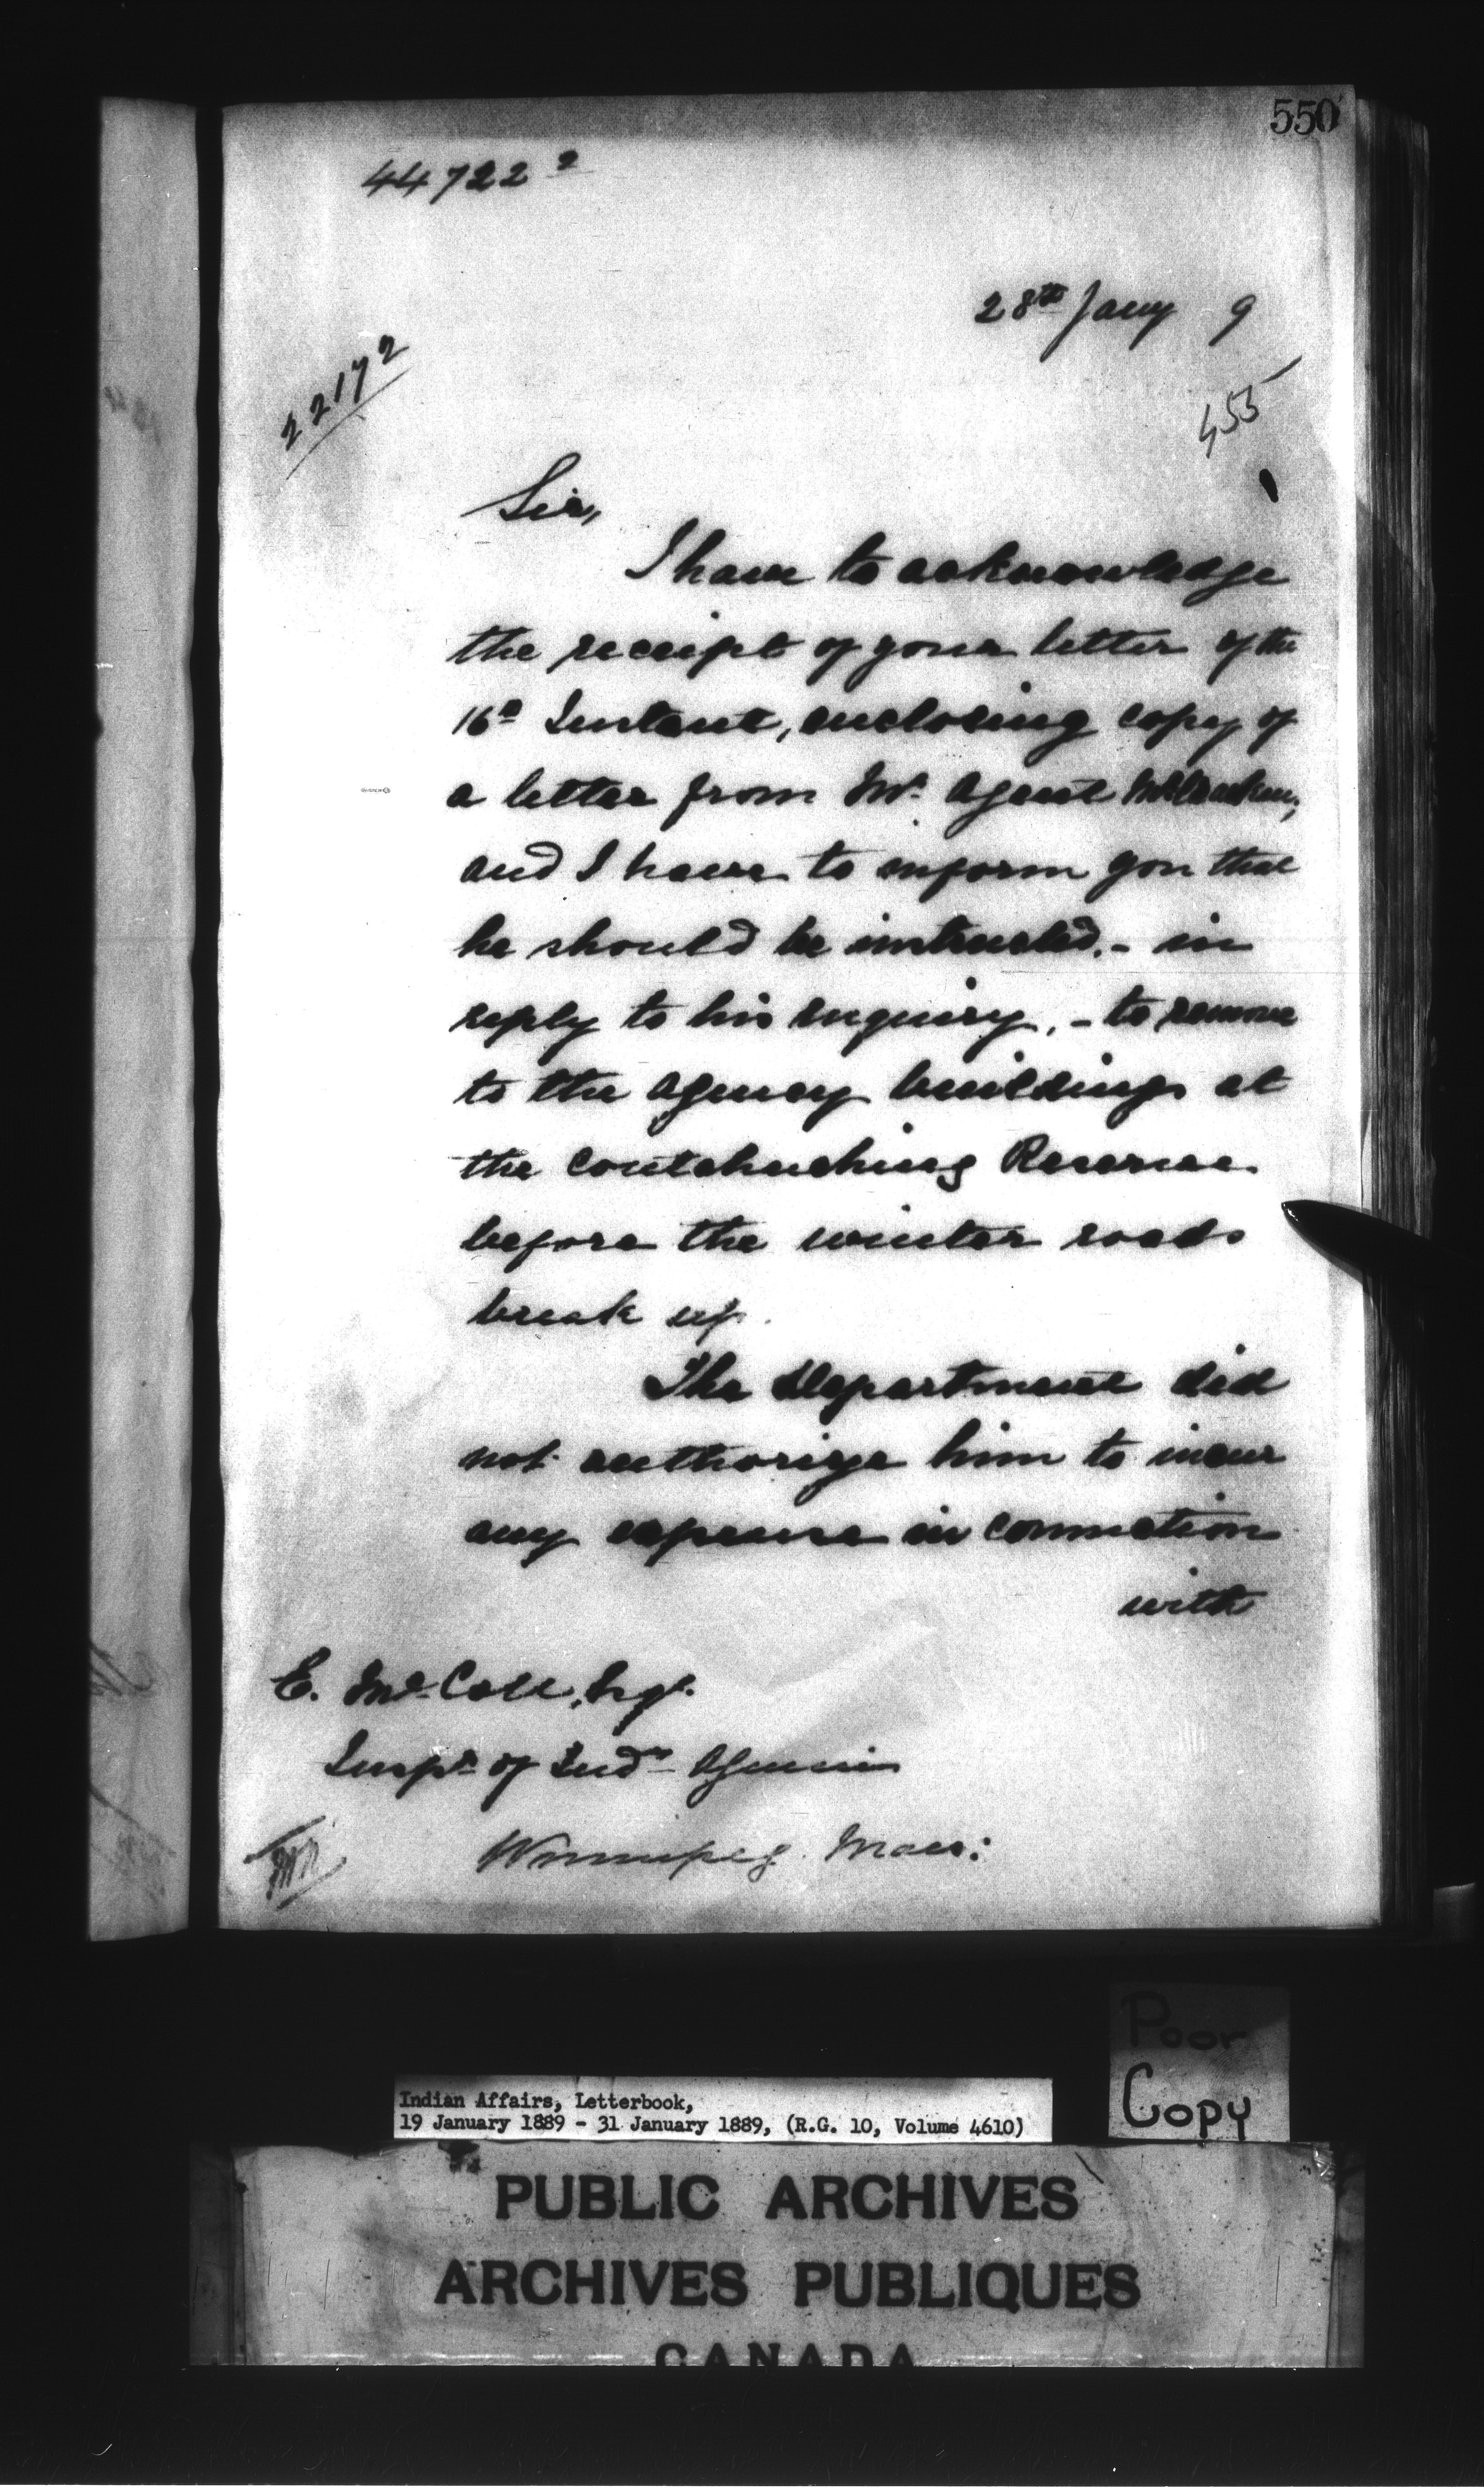 550
44722 2
28th Jany 9
2217 2
455
Sir,
I have to acknowledge
the receipt of your letter of the
16th Instant, enclosing copy of
a letter from Mr. Agent McCracken,
and I have to inform you that
he should be instructed, - in
reply to his enquiry, - to remove
to the agency buildings at
the Coutcheching Reserve
before the winter roads
break up.
The Department did
not authorize him to incur
any expense in connection
with
E. McColl, Esqr.
Inspr. of Indn. Agencies
Winnipeg Man:
Poor
Copy
Indian Affairs, Letterbook,
19 January 1889 - 31 January 1889, (R.G. 10, Volume 4610)
PUBLIC ARCHIVES
ARCHIVES PUBLIQUES
CANADA